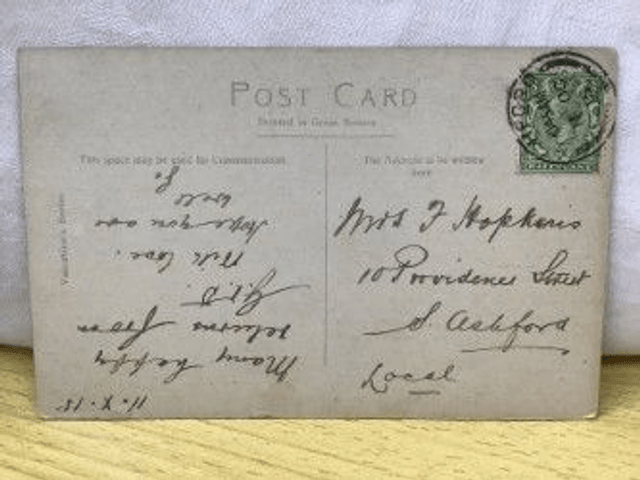 POST CARD
Printed in Great Britain
This space may be used for Communication
The Address to be written
here
Mrs F Hopkins
10 Providence Street
S. Ashford
Local
11.X.15
Many happy
returns from
With love.
hope you are
well